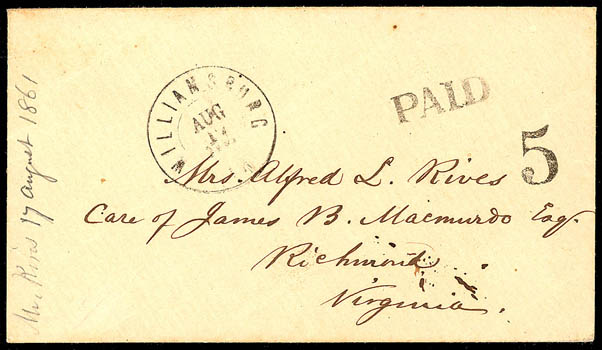 WILLIAMSBURG
AUG
17
PAID
5
Mrs. Alfred L. Rives
Care of James B. Macmurdo Esq.
Richmond
Virginia.
Mr. Rives 17 August 1861